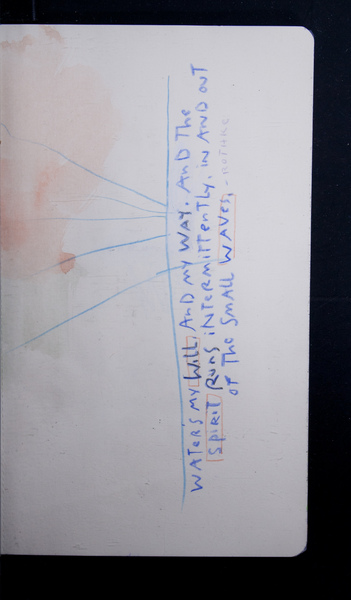 WATER'S MY WILL, AND MY WAY. AND THE
SPIRIT RUNS INTERMITTENTLY, IN AND OUT
OF THE SMALL WAVES,